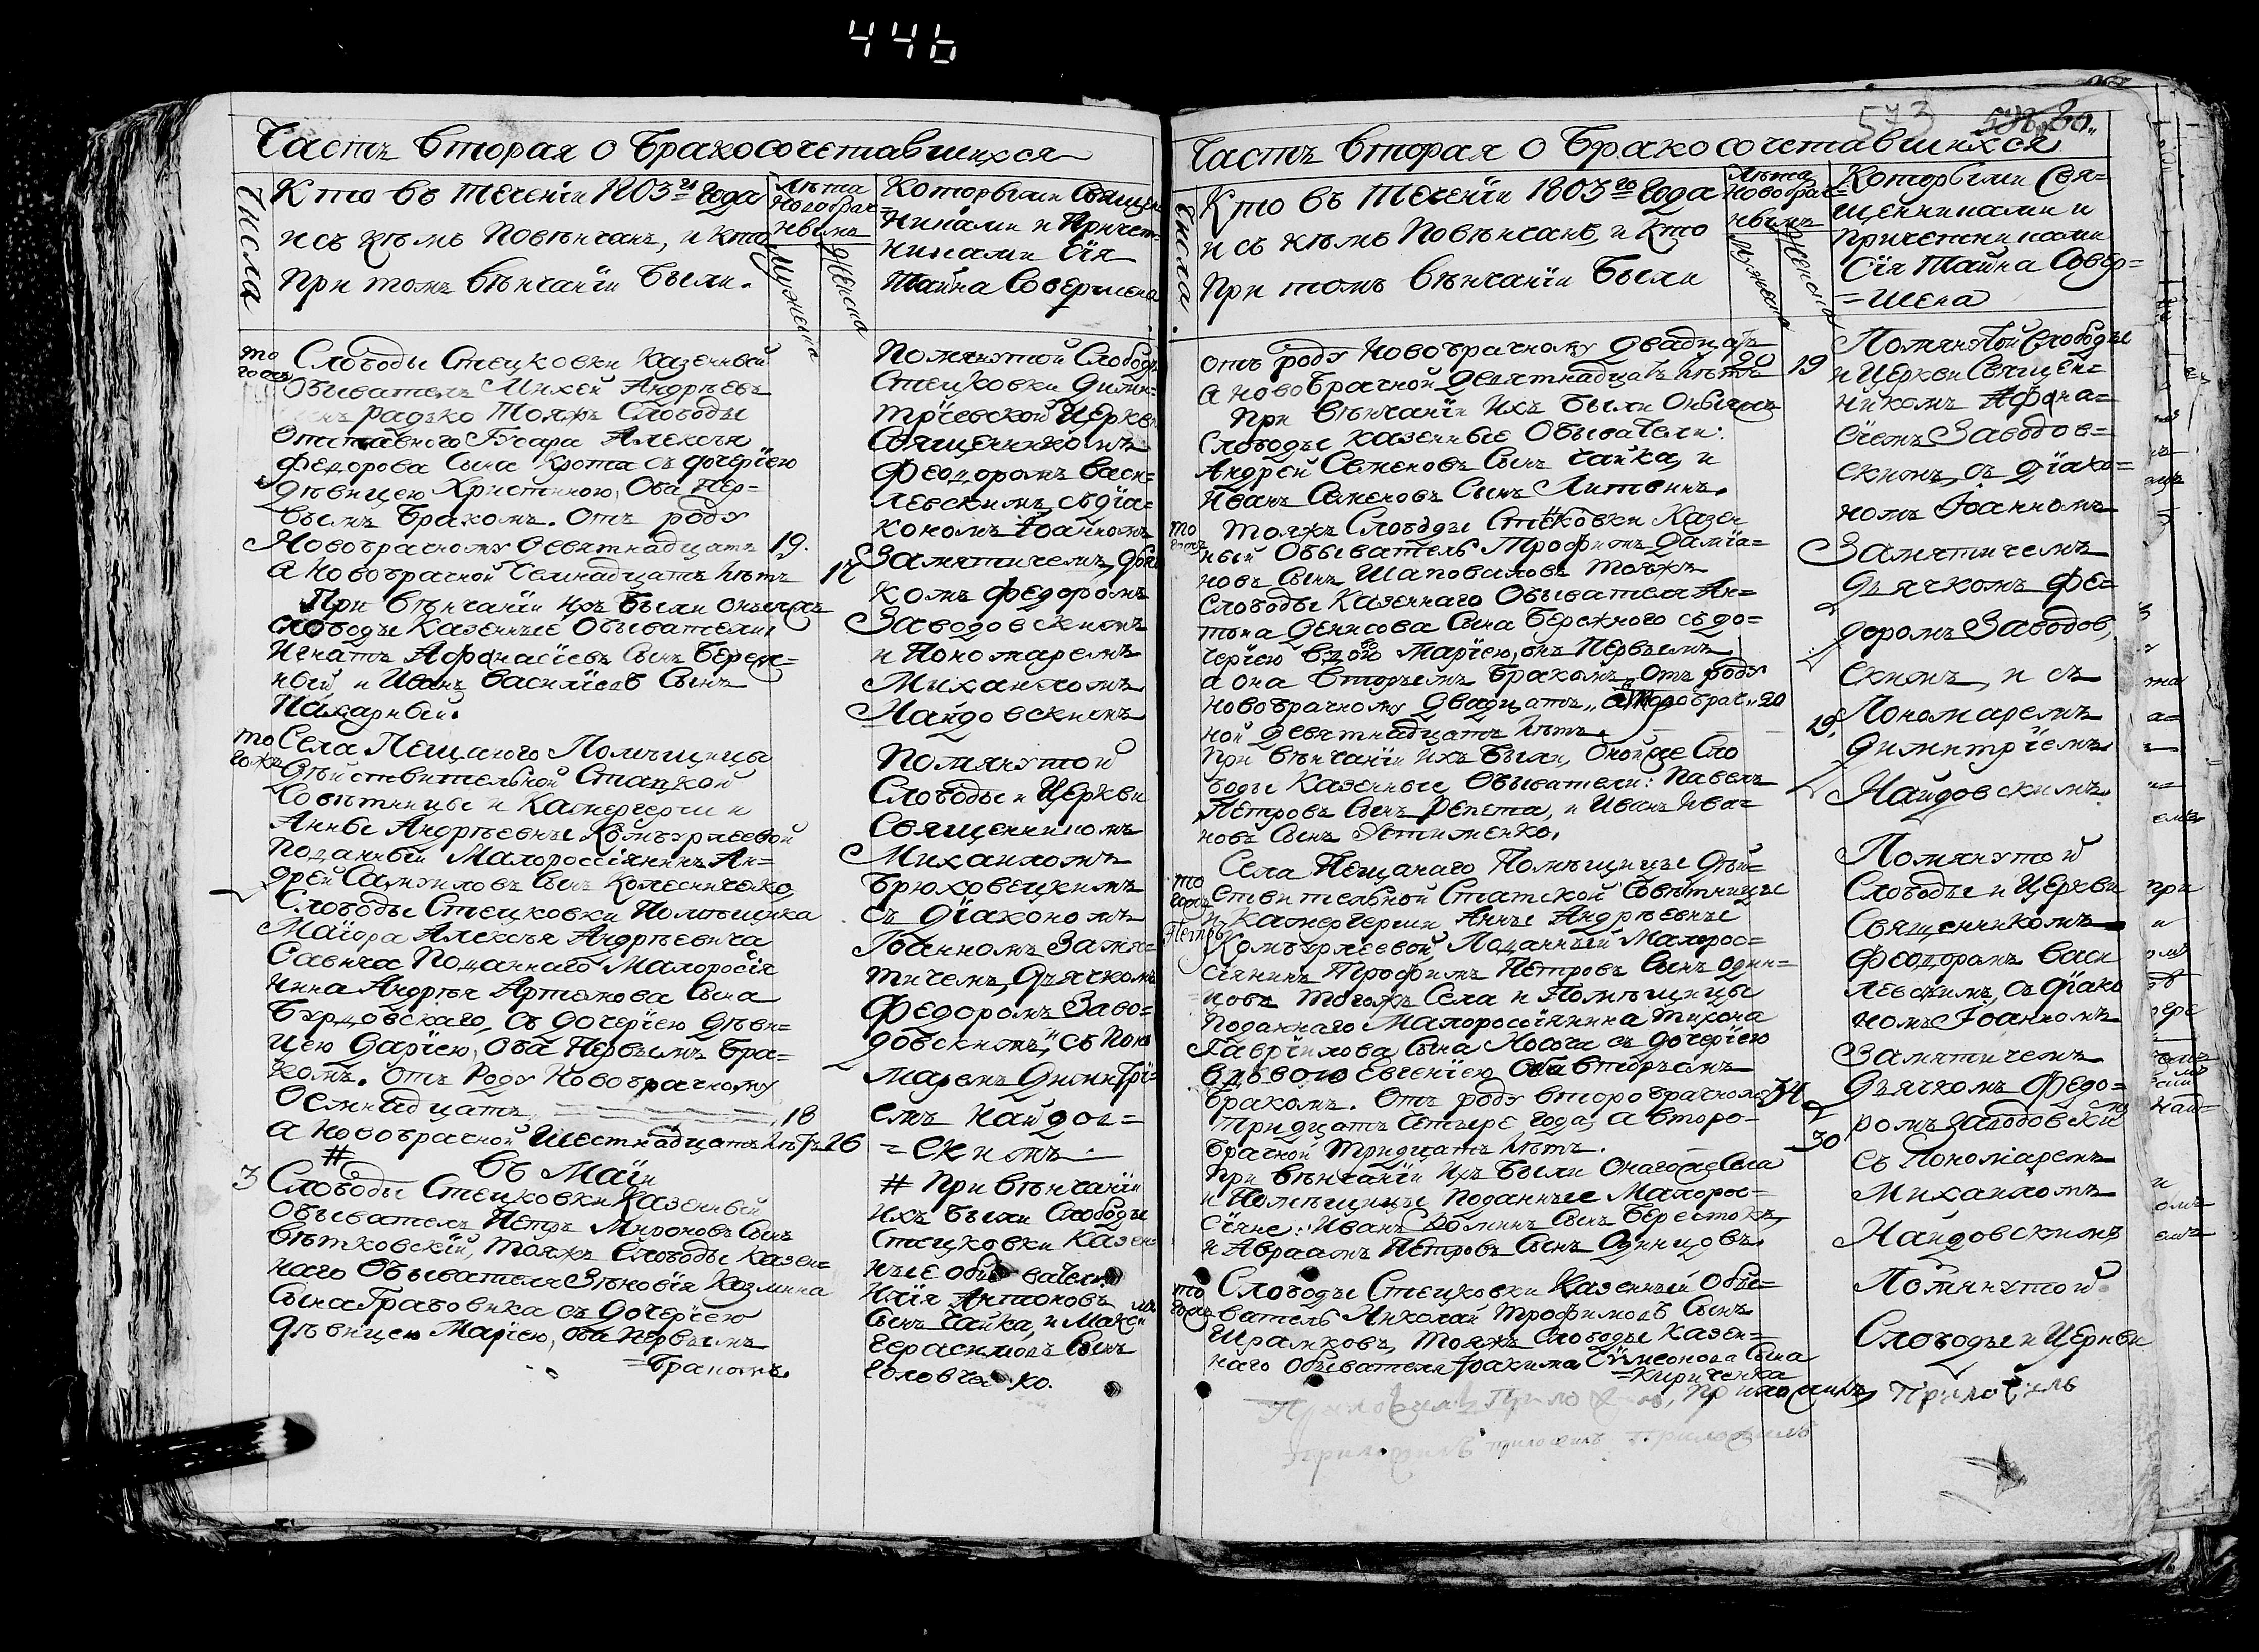 446
Часть вторая о бракосочетавшихся
Числа
Кто въ теченіи 1803го года
и съ кѣмъ повѣнчанъ, и кто
при томъ вѣнчаніи были.
Лѣта
новобрач-
ныхъ
Мужеска
Женска
Которыми священ
никами и причет-
никами сія
тайна совершена
тогожъ
Слободы Стецковки казенный
Обыватель Михей Андрѣевъ
Радько тояжъ слободы
Отставного Алексѣя
Федорова сына Крота съ дочерїею
дѣвицею Христиною, Оба пер-
вымъ бракомъ. Отъ роду
Новобрачному девятнадцать 19.
а новобрачной семнадцать лѣтъ 17
При вѣнчаніи ихъ были оныяжъ
слободы казенные обыватели,
Игнатъ Афонасїевъ сынъ Береж-
ный и Иванъ Василїевъ сынъ
Пахарный.
Помянутой слободы
Стецковки Дими-
трїевской церкви
священникомъ
Феодоромъ Васи-
левскимъ, съ дїа-
кономъ Іоанномъ
Замятичемъ, дьяч
комъ Федоромъ
Заводовскимъ
и пономаремъ
Михаиломъ
Найдовскимъ
тогожъ
Села Пещаного помѣщицы
дѣйствительной статской
совѣтницы и камергерши
Анны Андрѣевны Комбурлеевой
поданный малороссїянинъ Ан-
дрей Самуиловъ сынъ Колесниченко,
Слободы Стецковки помѣщика
Маїора Алексѣя Андрѣевича
Савича поданнаго малоросїя
нина Андрѣя Артемова сына
Бурдовскаго, съ дочерїею дѣви-
цею Дарїею, оба первымъ бра-
комъ. Отъ роду новобрачному
Осмнадцать 18
а новобрачной шестнадцать лѣтъ 16
Помянутой
Слободы и церкви
священникомъ
Михаиломъ
Брюховецкимъ
съ дїакономъ
Іоанномъ Замя-
тичемъ, дьячкомъ
Федоромъ Заво-
довскимъ, и съ поно
маремъ Димитрї-
емъ Найдов-
=скимъ
# въ Маїи
3
Слободы Стецковки казенный
обыватель Петръ Мироновъ сынъ
Вѣтковскїй, тояжъ слободы казен-
наго обывателя Зѣновїя Козмина
сына Грабовика съ дочерїею
дѣвицею Марїею, оба первымъ
=бракомъ.
# При вѣнчанїи
ихъ были слободы
Стецковки казен-
ные обыватели
Илїя Антоновъ
сынъ Чайка, и Макси
Герасимовъ сынъ
Головченко.
573
Часть вторая о бракосочетавшихся
Числа.
Кто въ теченіи 1803го года
и съ кѣмъ повѣнчанъ, и кто
при томъ вѣнчаніи были
Лѣта
новобрач-
ныхъ
Мужеска
Женска
Которыми свя-
щенниками и
причетниками
сія тайна совер=
=шена
отъ роду новобрачному двадцать 20
а новобрачной девятнадцать лѣтъ 19
При вѣнчаніи ихъ были оныяжъ
слободы казенные обыватели:
Андрей Семеновъ сынъ Чайка, и
Иванъ Семеновъ сынъ Литвинъ.
Помянутой слободы
и церкви священ-
никомъ Афона-
сїемъ Заводов-
скимъ, съ дїако-
номъ Іоанномъ
Замятичемъ
дьячкомъ Фе-
доромъ Заводов,
скимъ, и съ
пономаремъ
Димитрїемъ
Найдовскимъ.
тогожъ
Тояжъ слободы Стецковки казен
ный обыватель Трофимъ Дамїа-
новъ сынъ Шаповаловъ тояжъ
слободы казеннаго обывателя Ан-
тона Денисова сына Бережного съ до-
черїею вдовою Марїею, онъ первымъ
а она вторымъ бракомъ. Отъ роду
новобрачному двадцать, 20
ной девятнадцать лѣтъ. 19.
При вѣнчанїи ихъ были, онойже сло
боды казенные обыватели: Павелъ
Петровъ сынъ Репета, и Иванъ Ива-
новъ сынъ Устименко.
тогожъ
Села Пещанаго помѣщицы дѣй-
ствительной статской совѣтницы
и камергерши Анны Андрѣевны
Комбурлеевой, поданный малорос-
сїянинъ Трофимъ Петровъ сынъ Один-
цовъ тогожъ села и помѣщицы
поданнаго малоросїянина Тихона
Гаврїилова сына Носача съ дочерїею
вдовою Евгенїею оба вторымъ
бракомъ. Отъ роду второбрачному 34
тридцать четыре года, а второ-
брачной тридцать лѣтъ. 30
При вѣнчанїи ихъ были онагоже села
и помѣщицы поданные малорос-
сїяне: Иванъ Фоминъ сынъ Берестокъ,
и Авраамъ Петровъ сынъ Одинцовъ.
Помянутой
слободы и церкви
священникомъ
Феодоромъ Васи
левскимъ, съ дїако
номъ Іоанномъ
Замятичемъ
дьячкомъ Федо-
ромъ Заводовски
съ пономаремъ
Михаиломъ
Найдовскимъ
тогожъ
Слободы Стецковки казенный обы-
ватель Николай Трофимовъ сынъ
Шрамковъ, тояжъ слободы казен-
наго обывателя Іоакима Сѵмеонова сына
=Кириченка
Помянутой
Слободы и церкви